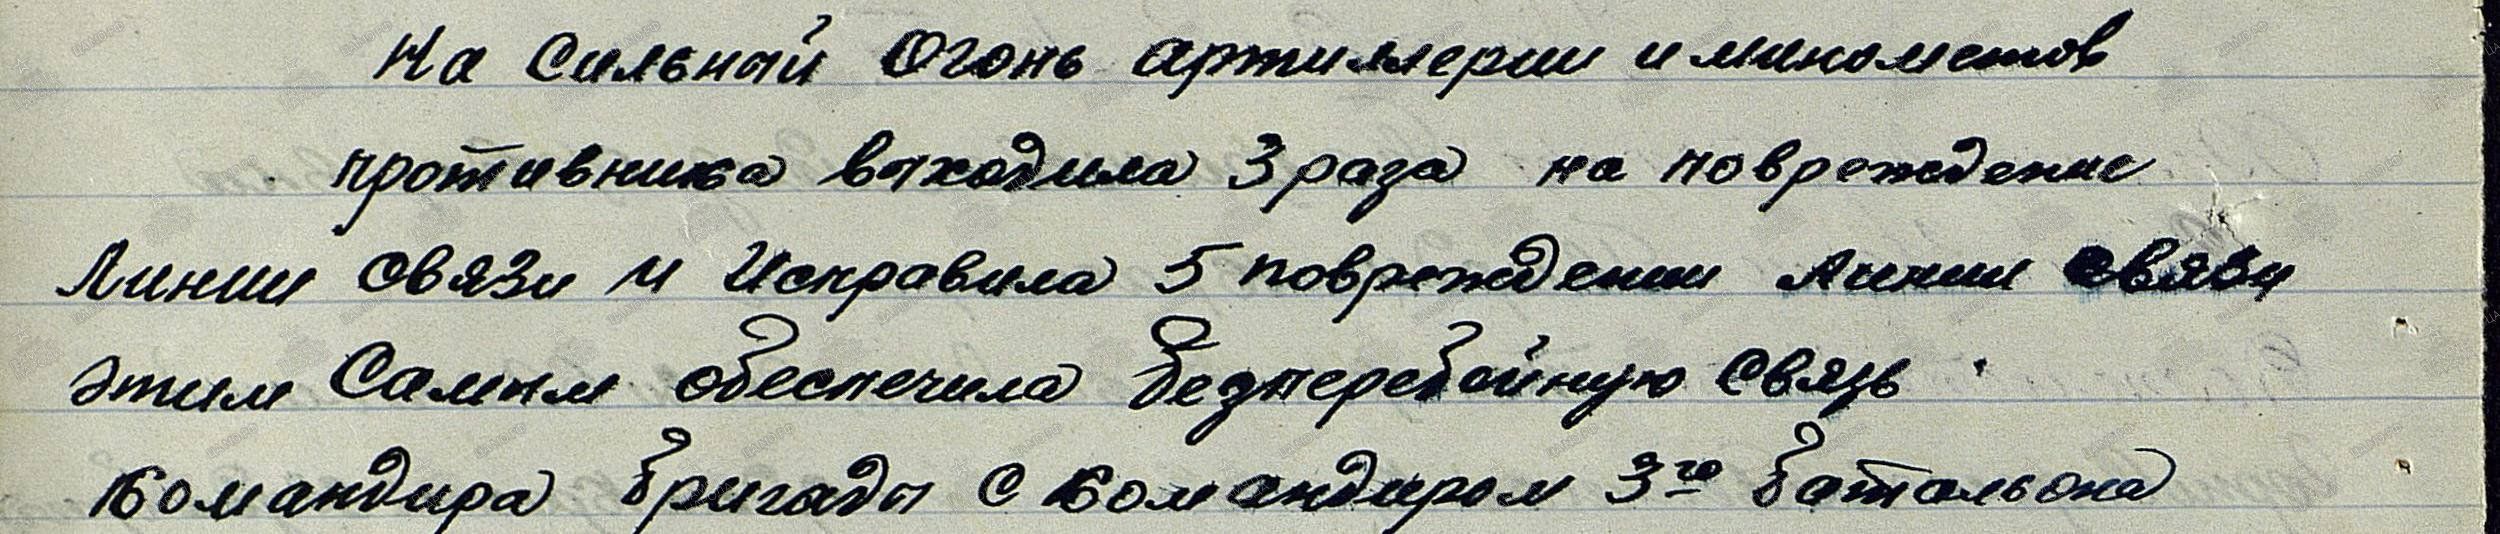 На Сильный Огонь артиллерии и минометов
противника выходила 3 раза на повреждение
Линии связи и Исправила 5 повреждении линии связи
этим Самым обеспечила безперебойную Связь
Командира бригады с Командиром 3го батальона